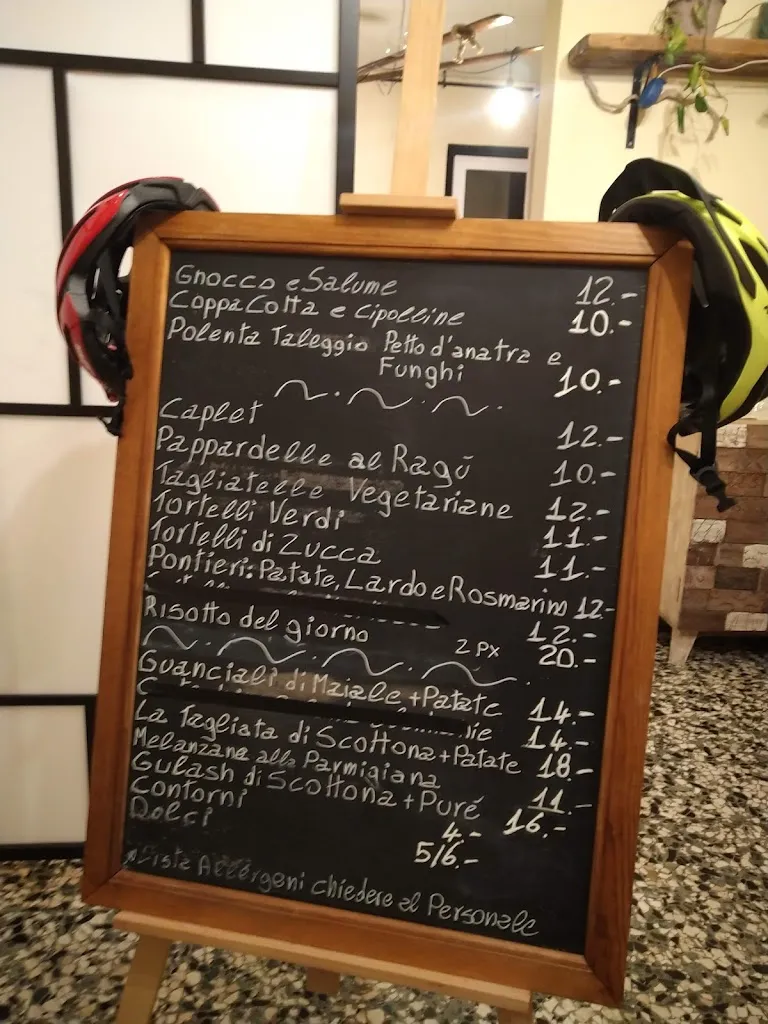 Gnocco e Salume 12.-
Coppa Cotta e Cipolline 10.-
Polenta Taleggio Petto d'anatra e
Funghi 10.-
Caplet 12.-
Pappardelle al Ragú 10.-
Tagliatelle Vegetariane 12.-
Tortelli Verdi 11.-
Tortelli di Zucca 11.-
Pontieri: Patate, Lardo e Rosmarino 12-
12.-
Risotto del giorno 2 PX 20.-
Guanciali di Maiale + Patate 14.-
14.-
La Tagliata di Scottona + Patate 18.-
Melanzane alla Parmigiana 11.-
Gulash di Scottona + Puré 16.-
Contorni 4.-
Dolci 5/6.-
Lista Allergeni chiedere al Personale